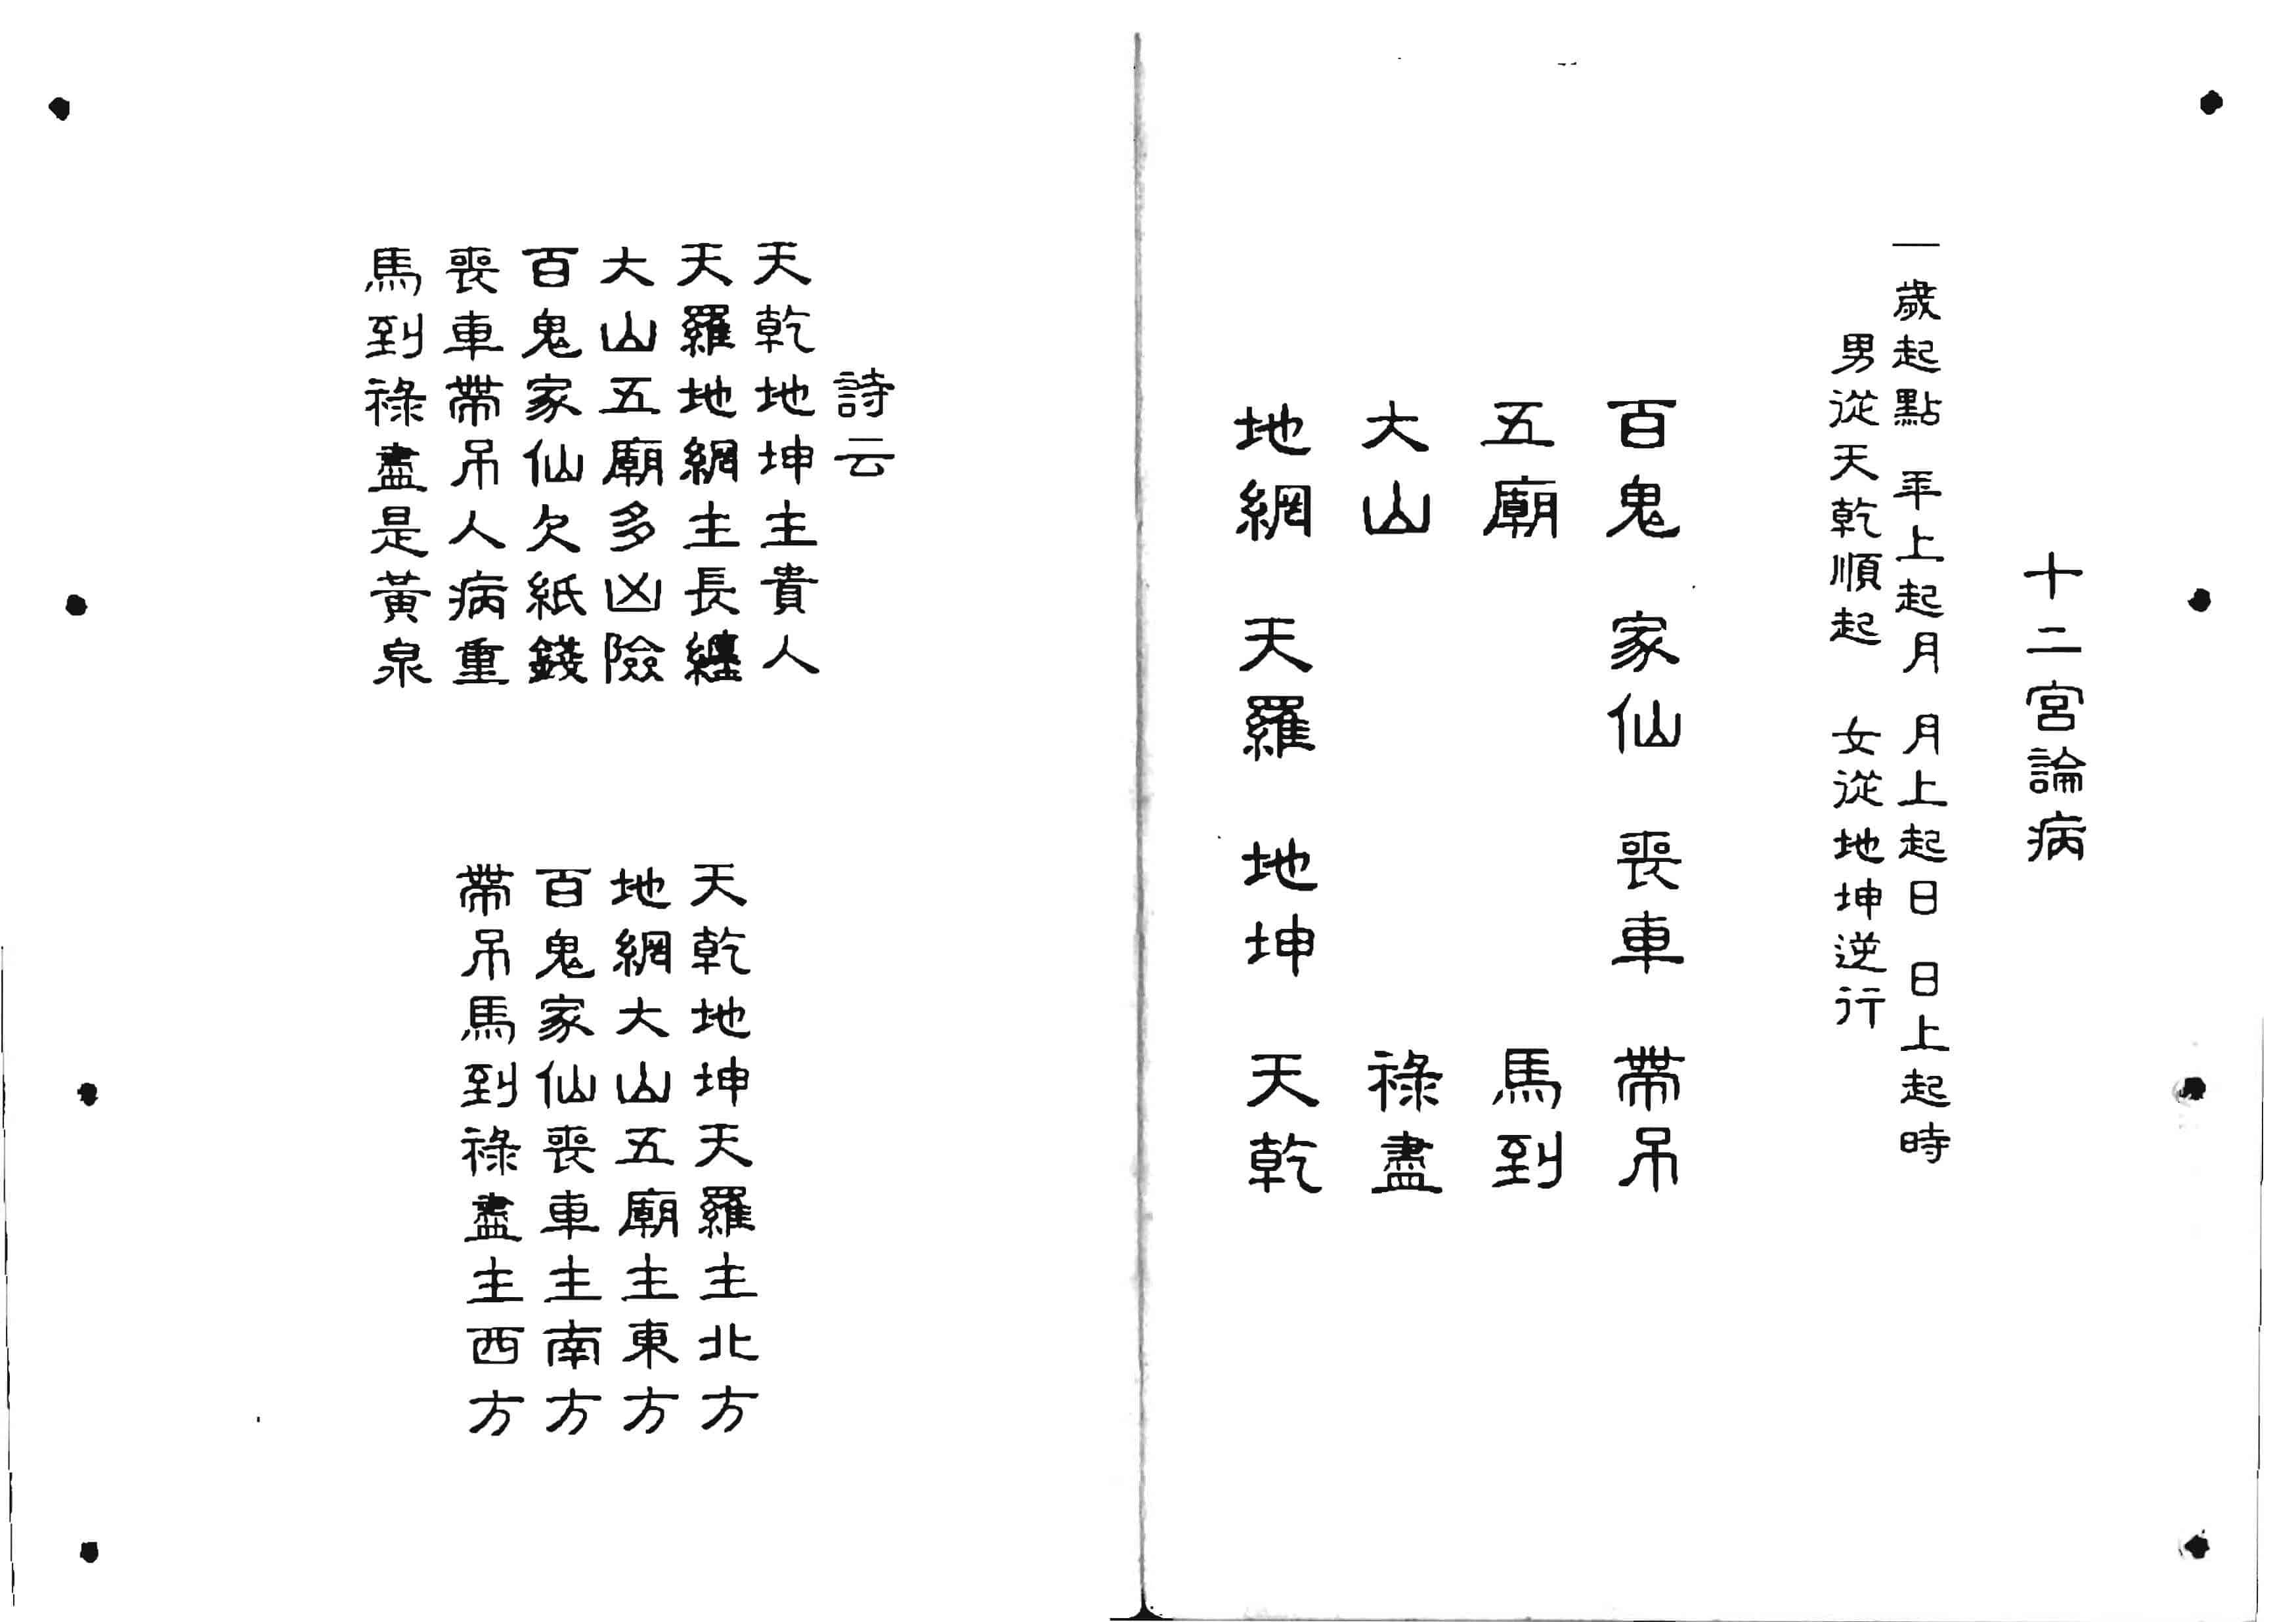 十二宮論病
一歲起點 年上起月 月上起日 日上起時
男從天乾順起 女從地坤逆行
百鬼 家仙 喪車 帶吊
五廟 馬到
大山 祿盡
地網 天羅 地坤 天乾
詩云
天乾地坤主貴人
天羅地網主長纏
大山五廟多凶險
百鬼家仙欠紙錢
喪車帶吊人病重
馬到祿盡是黃泉
天乾地坤天羅主北方
地網大山五廟主東方
百鬼家仙喪車主南方
帶吊馬到祿盡主西方